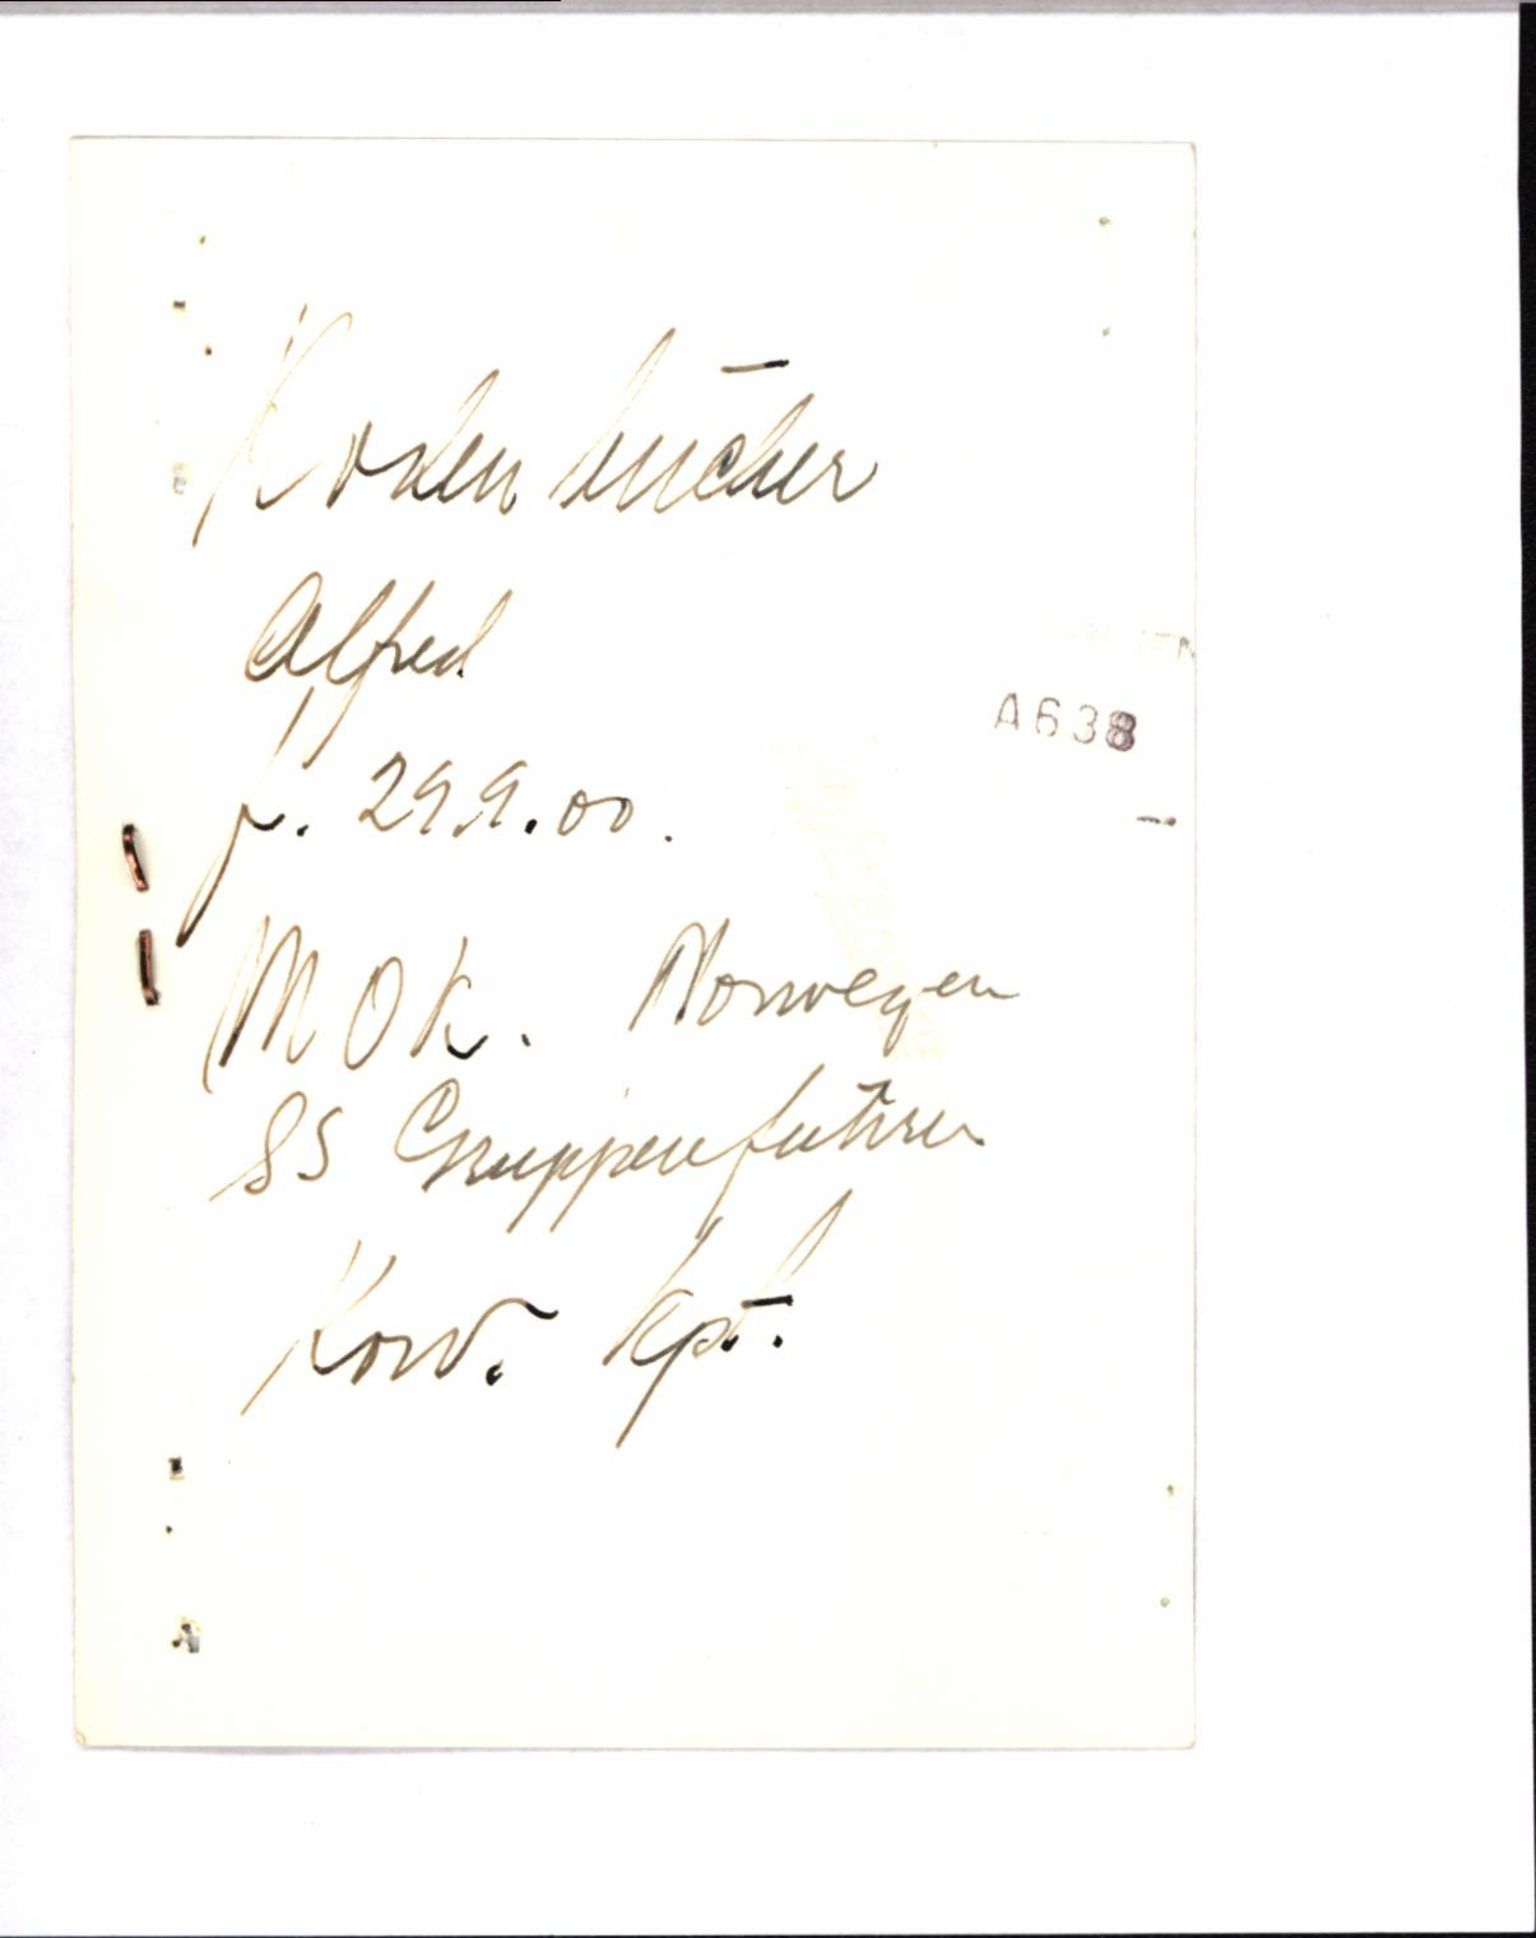 Rodenbücher
Alfred
A638
f. 29.9.00.
MOK. Norwegen
SS Gruppenführer
Korv. Kpt.